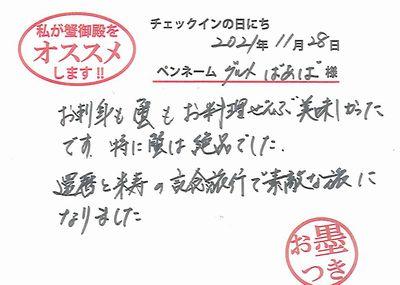 私が蟹御殿を
オススメ
します!!
チェックインの日にち
2021年11月28日
ペンネーム グルメばあば 様
お刺身も蟹もお料理ぜんぶ美味しかった
です。特に蟹は絶品でした。
還暦と米寿の記念旅行で素敵な旅に
なりました
お墨
つき